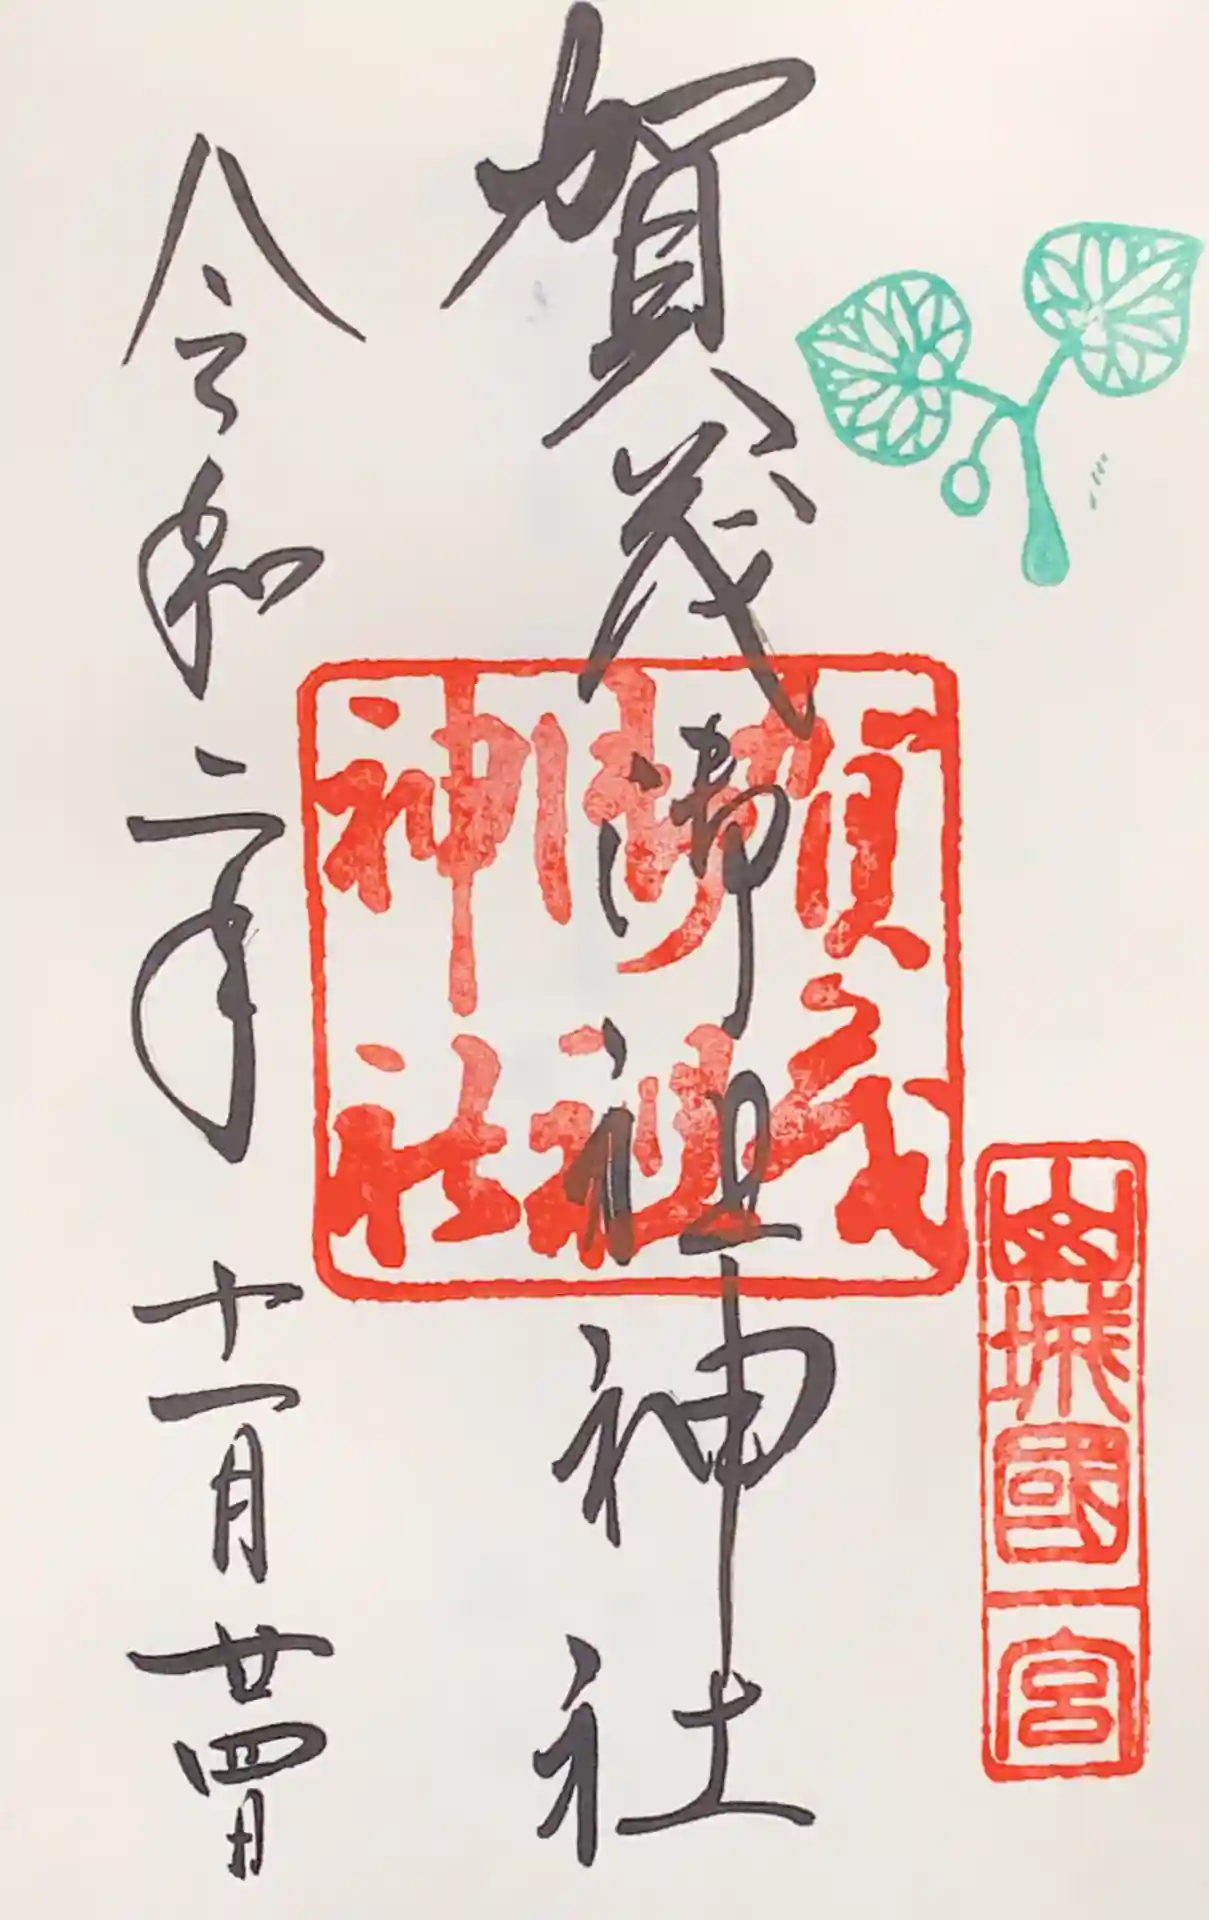 賀茂御祖神社
賀茂
御祖
神社
山城國
一宮
令和二年 十一月廿四日